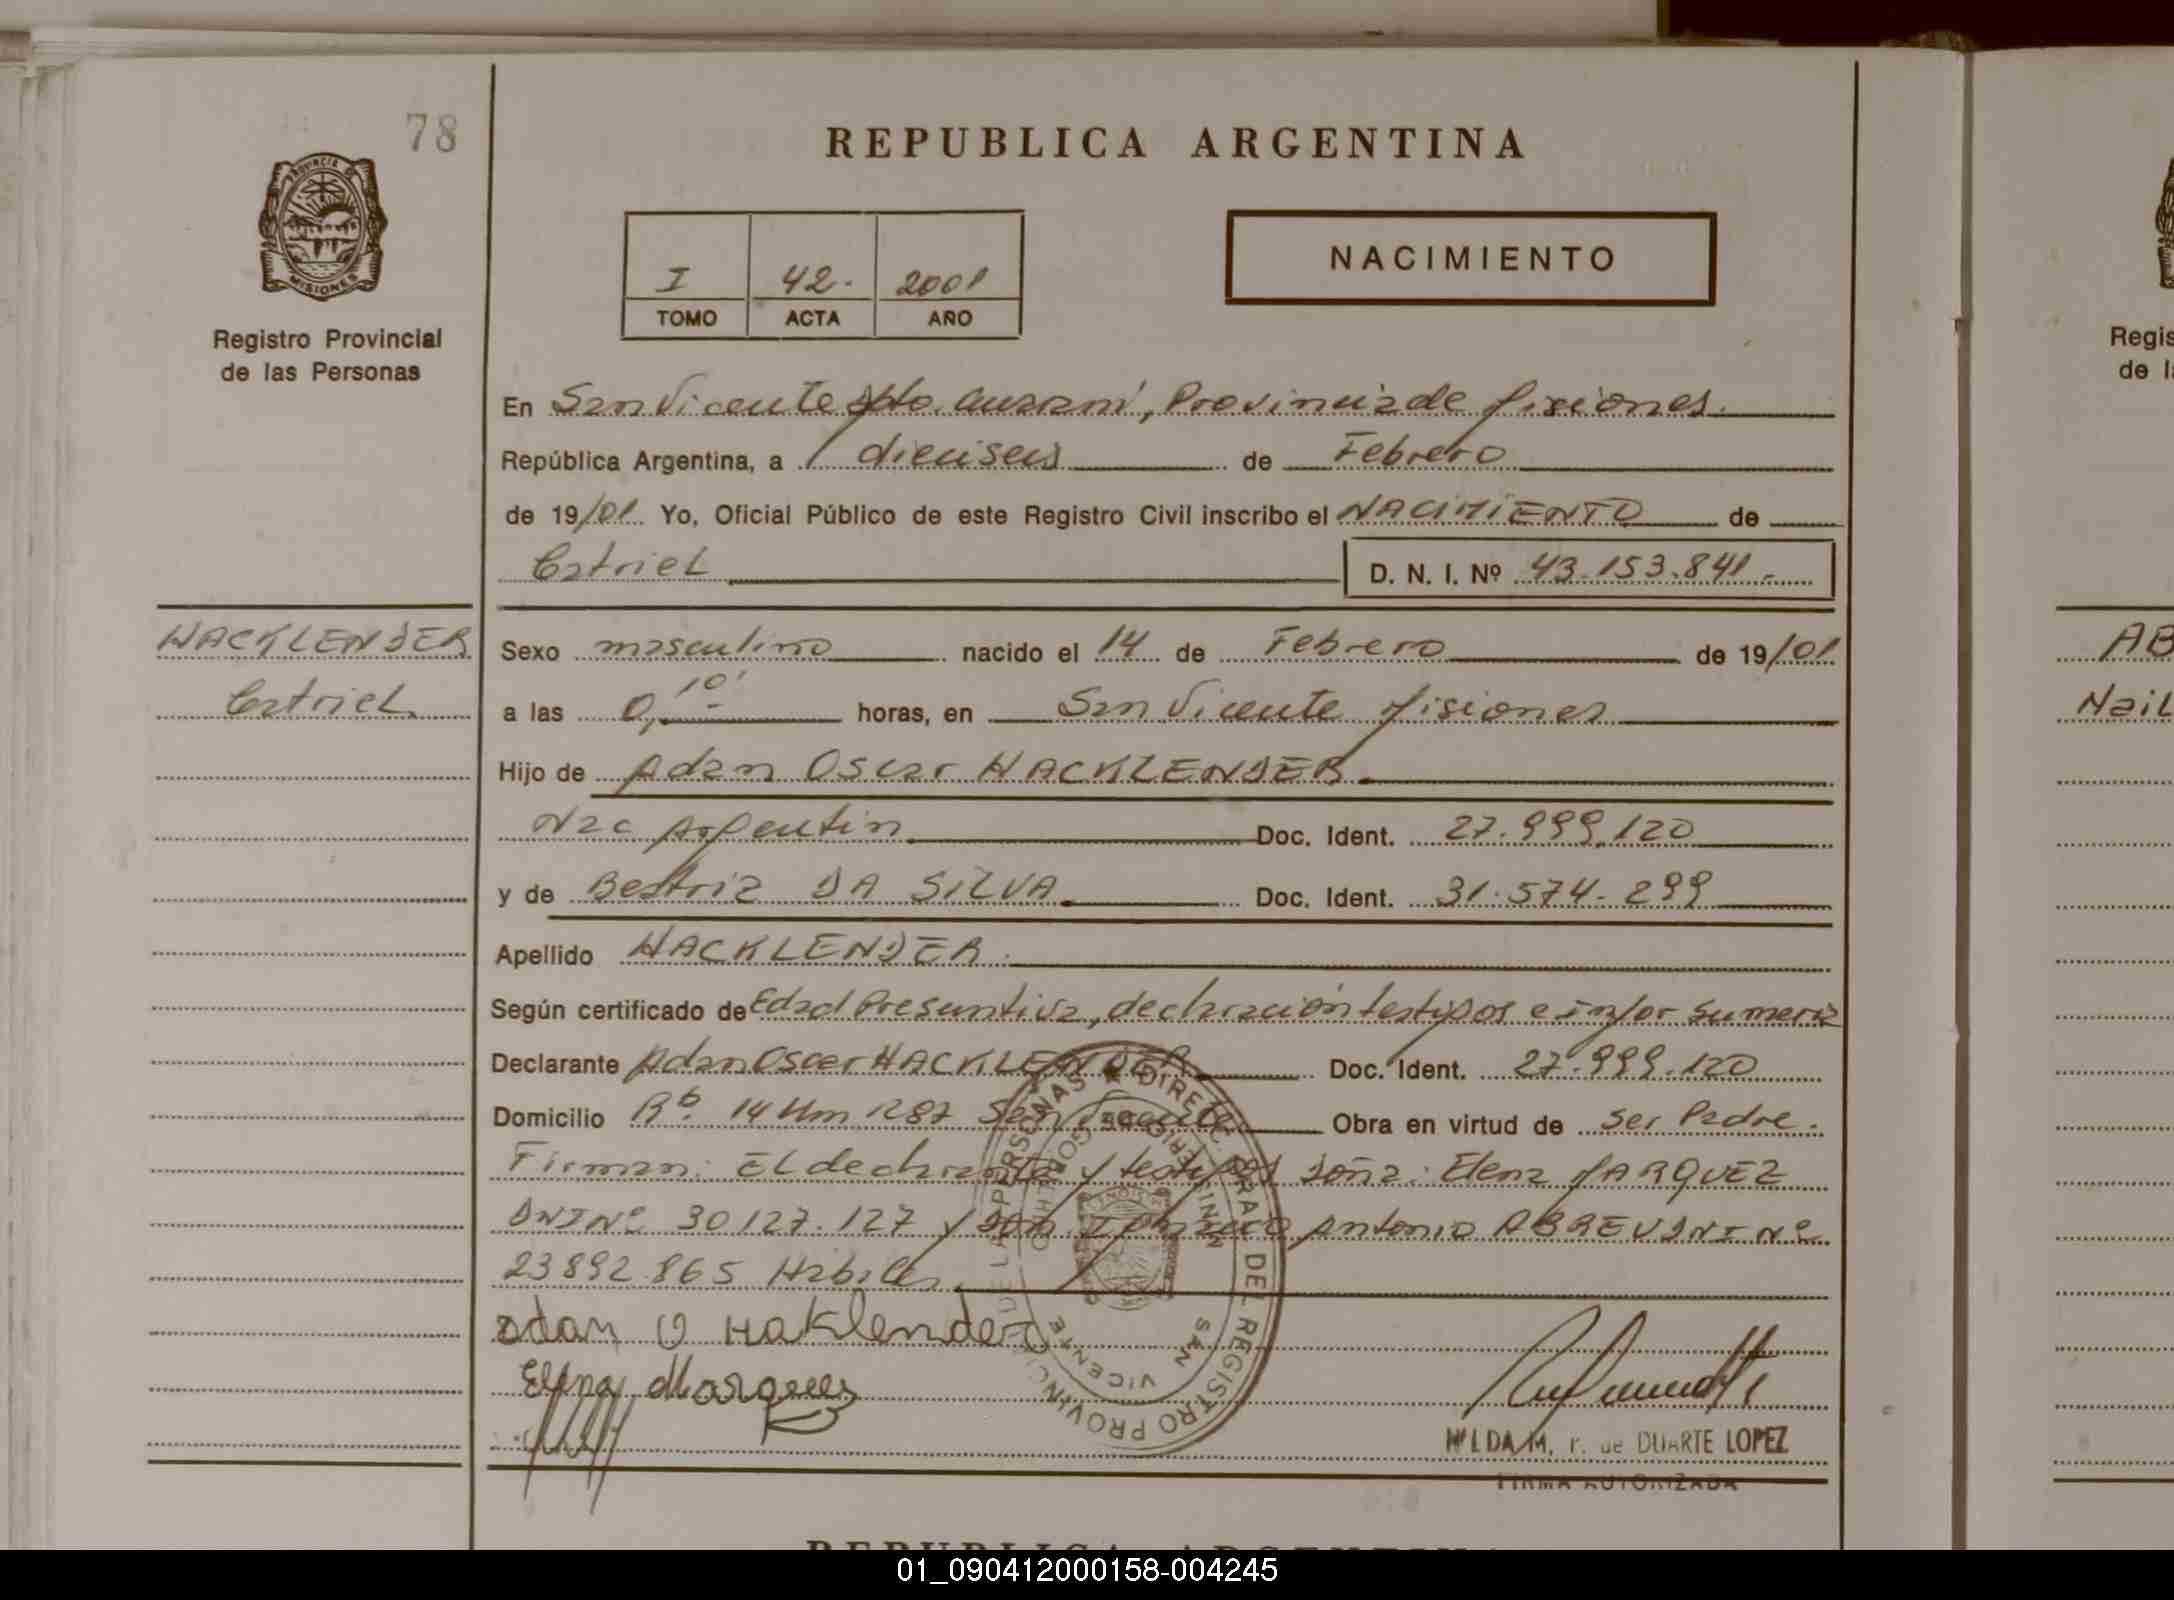 78
REPUBLICA ARGENTINA
PROVINCIA
MISIONES
Registro Provincial
de las Personas
I 42. 2001
TOMO ACTA AÑO
NACIMIENTO
En San Vicente Dpto. Guaraní, Provincia de Misiones.
República Argentina, a dieciseis de Febrero
de 19/01 Yo, Oficial Público de este Registro Civil inscribo el NACIMIENTO de
Catriel D. N. I. Nº 43.153.841.-
HACKLENDER
Catriel
Sexo masculino nacido el 14 de Febrero de 19/01
a las 0,10' horas, en San Vicente Misiones
Hijo de Adan Oscar HACKLENDER
Nac Argentin Doc. Ident. 27.999.120
y de Beatriz DA SILVA Doc. Ident. 31.574.299
Apellido HACKLENDER.
Según certificado de Edad Presuntiva, declaración testigos e infor Sumaria
Declarante Adan Oscar HACKLENDER Doc. Ident. 27.999.120
Domicilio 14 Km 1287 San Vicente Obra en virtud de ser Padre.
Firman: El declarante y testigos doña: Elena MARQUEZ
DNI Nº 30127.127 y don Antonio ABREU DNI Nº
23892.865 Hábiles
adan O Haklender
Elena Marques
DIRECC. GRAL. DEL REGISTRO PROVINCIAL DE LAS PERSONAS
SAN VICENTE
HILDA M. r. de DUARTE LOPEZ
FIRMA AUTORIZADA
REPUBLICA ARGENTINA
Regis
de la
AB
Nail
01_090412000158-004245